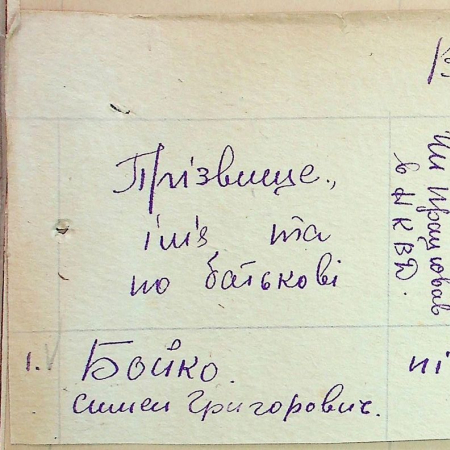 Прізвище,
імя та
по батькові
Чи працював
в НКВД.
1. Бойко.
Симен Григорович.
ні